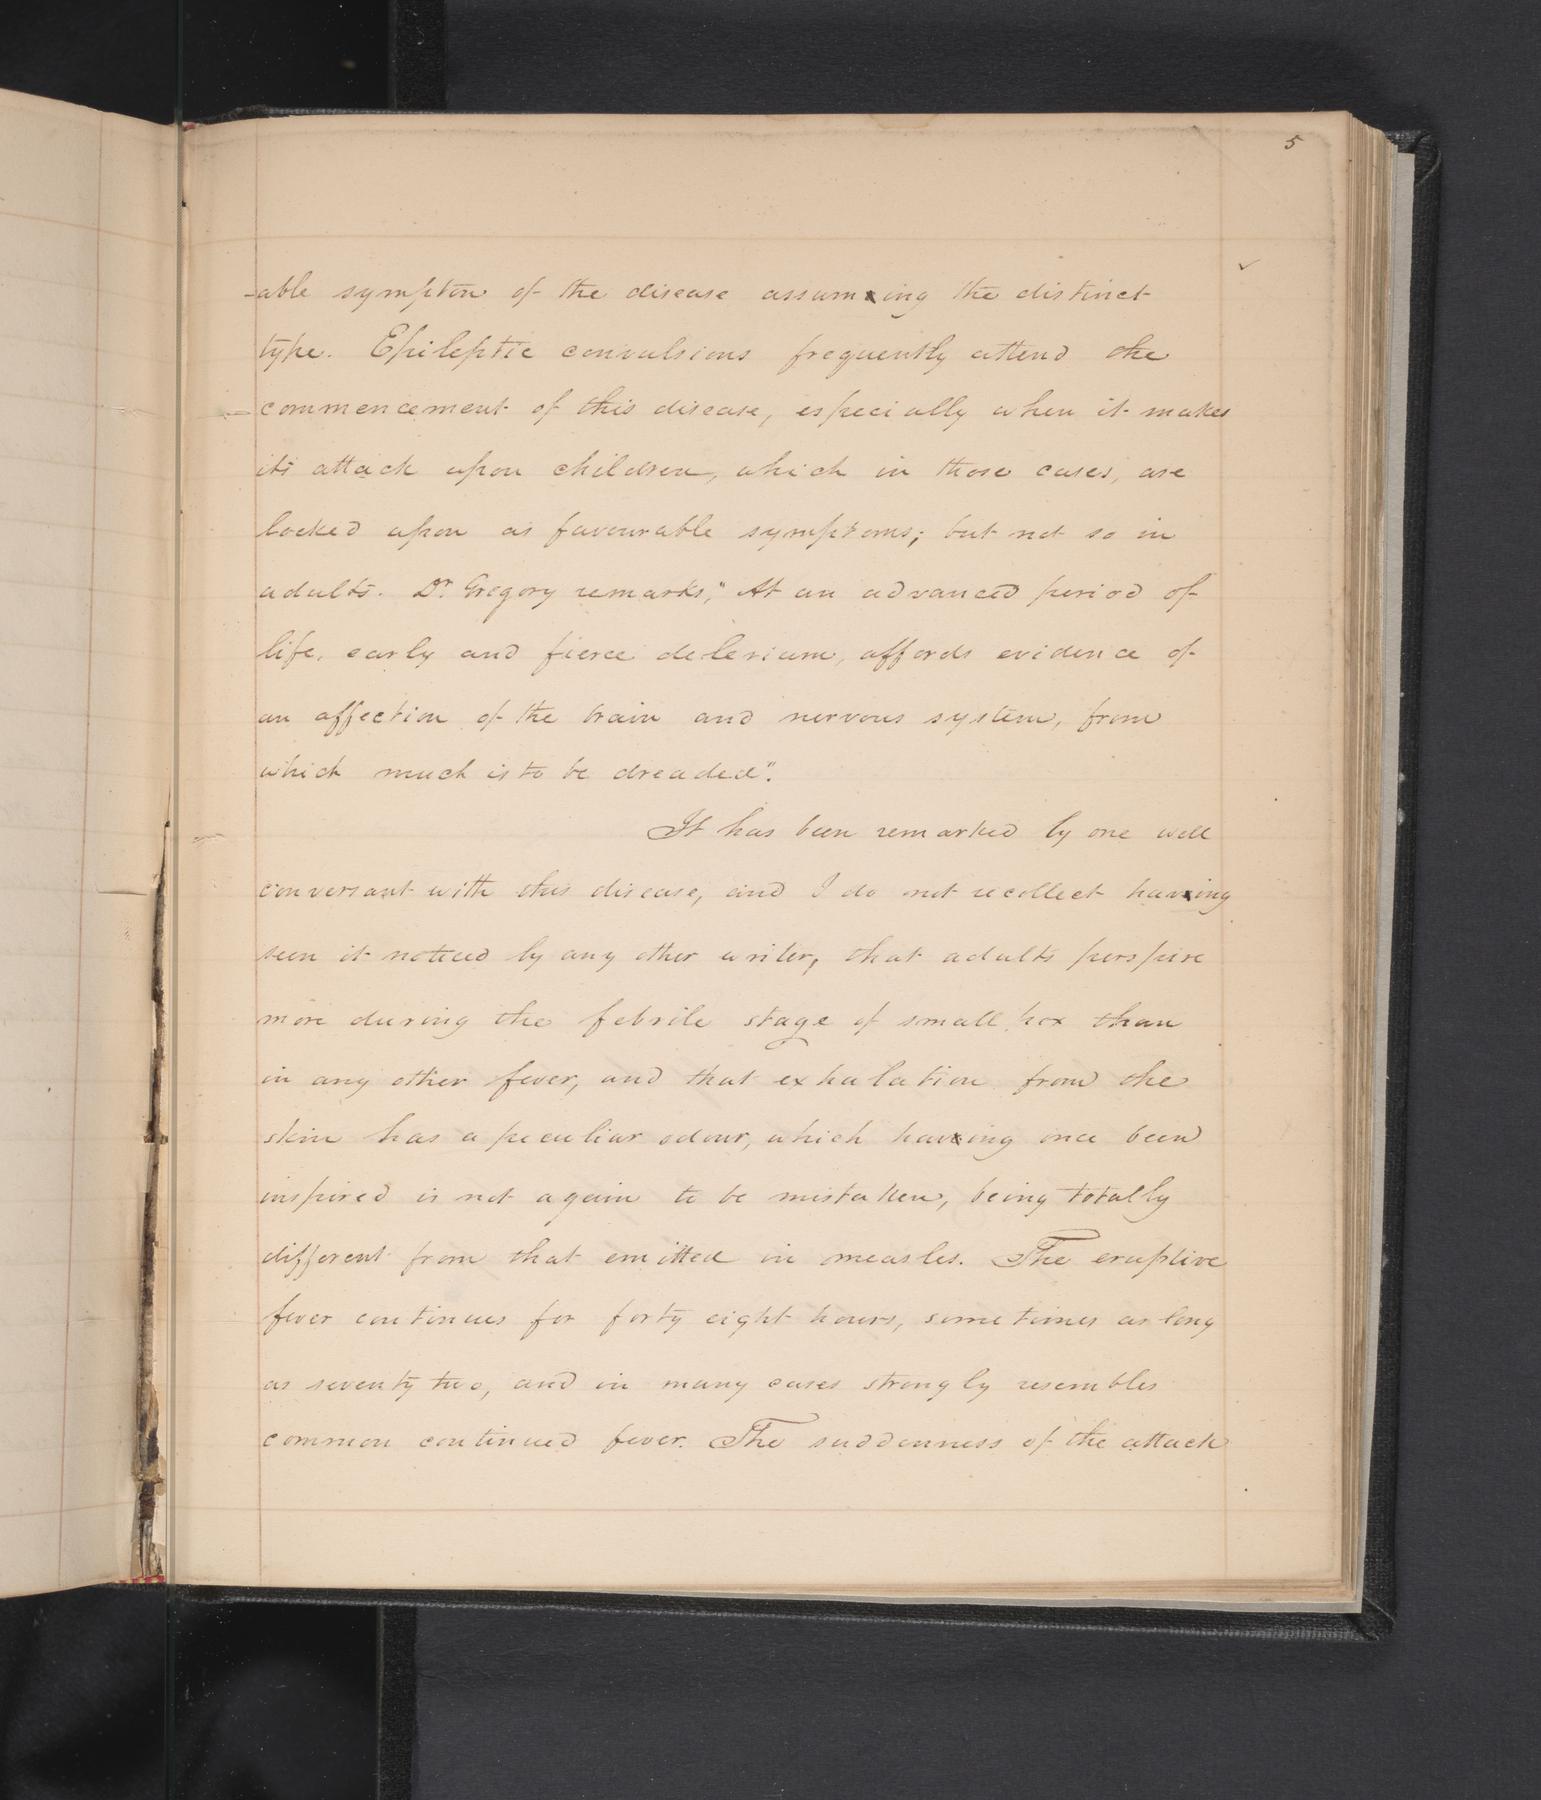 5
-able sympton of the disease assuming the distinct
type. Epileptic convulsions frequently attend the
commencement of this disease, especially when it makes
its attack upon children, which in those cases, are
looked upon as favourable symptoms; but not so in
adults. Dr. Gregory remarks, "At an advanced period of
life, early and fierce delerium, affords evidence of
an affection of the brain and nervous system, from
which much is to be dreaded".
It has been remarked by one well
conversant with this disease, and I do not recollect having
seen it noticed by any other writer, that adults perspire
more during the febrile stage of small pox than
in any other fever, and that exhalation from the
skin has a peculiar odour, which having once been
inspired is not again to be mistaken, being totally
different from that emitted in measles. The eruptive
fever continues for forty eight hours, sometimes as long
as seventy two, and in many cases strongly resembles
common continued fever. The suddenness of the attack